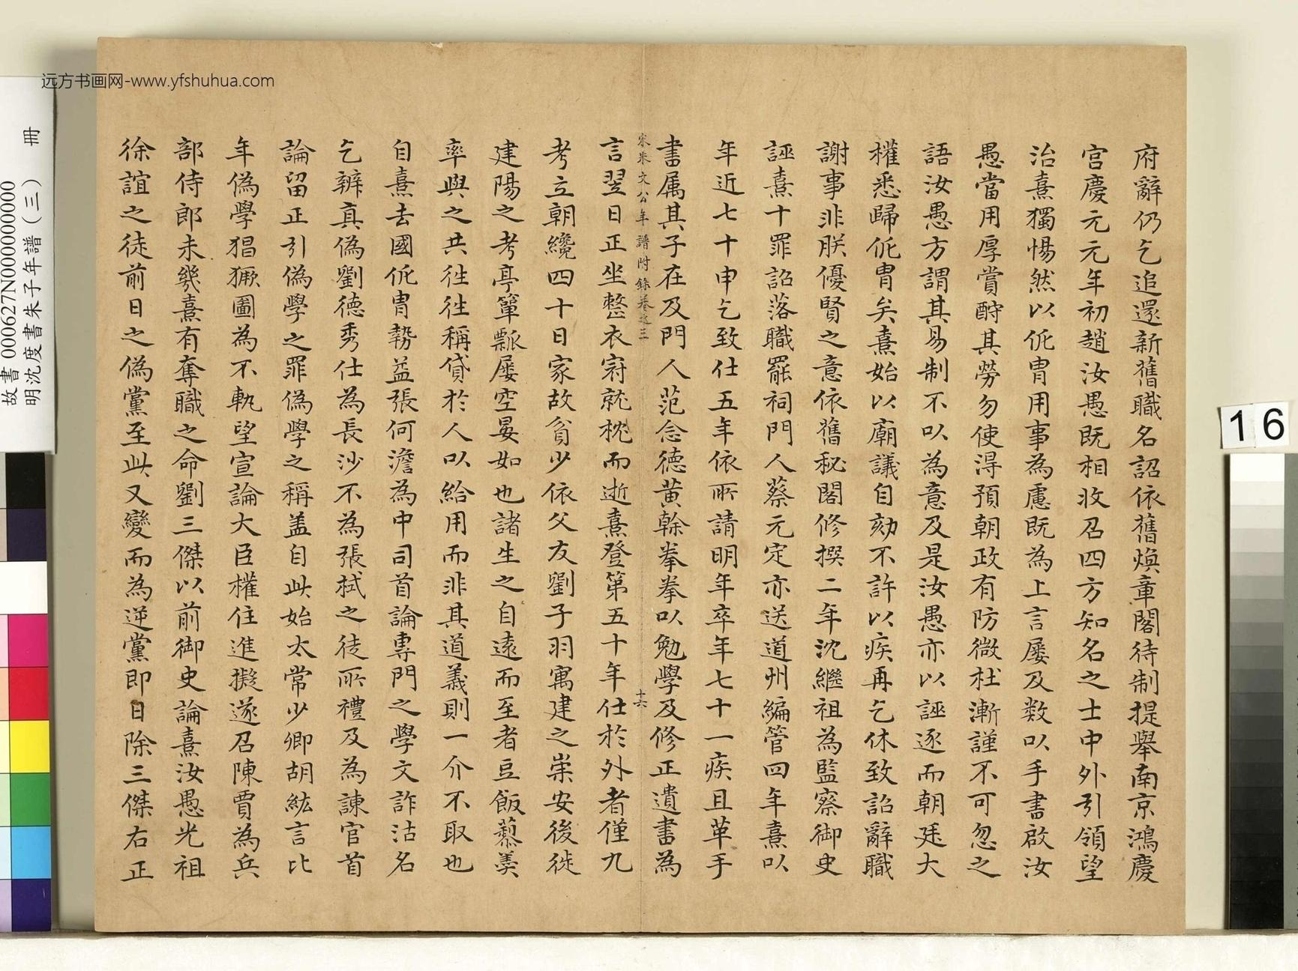 远方书画网-www.yfshuhua.com
故書000627N000000000 冊
明沈度書朱子年譜(三)
16
府辭仍乞追還新舊職名詔依舊煥章閣待制提舉南京鴻慶
宮慶元元年初趙汝愚既相收召四方知名之士中外引領望
治熹獨惕然以侂胄用事為慮既為上言屢及数以手書啟汝
愚當用厚賞酧其勞勿使淂預朝政有防微杜漸謹不可忽之
語汝愚方謂其易制不以為意及是汝愚亦以誣逐而朝廷大
權悉歸侂胄矣熹始以廟議自劾不許以疾再乞休致詔辭職
謝事非朕優賢之意依舊秘閣修撰二年沈繼祖為監察御史
誣熹十罪詔落職罷祠門人蔡元定亦送道州編管四年熹以
年近七十申乞致仕五年依所請明年卒年七十一疾且革手
書属其子在及門人范念德黄榦拳拳以勉學及修正遺書為
宋朱文公年譜附錄卷之三 十六
言翌日正坐整衣冠就枕而逝熹登第五十年仕於外者僅九
考立朝纔四十日家故貧少依父友劉子羽寓建之崇安後徙
建陽之考亭簞瓢屢空晏如也諸生之自遠而至者豆飯藜羹
率與之共往往稱貸於人以給用而非其道義則一介不取也
自熹去國侂胄勢益張何澹為中司首論專門之學文詐沽名
乞辨真偽劉德秀仕為長沙不為張栻之徒所禮及為諫官首
論留正引偽學之罪偽學之稱盖自此始太常少卿胡紘言比
年偽學猖獗圖為不軌望宣諭大臣權住進擬遂召陳賈為兵
部侍郎未幾熹有奪職之命劉三傑以前御史論熹汝愚光祖
徐誼之徒前日之偽黨至此又變而為逆黨即日除三傑右正